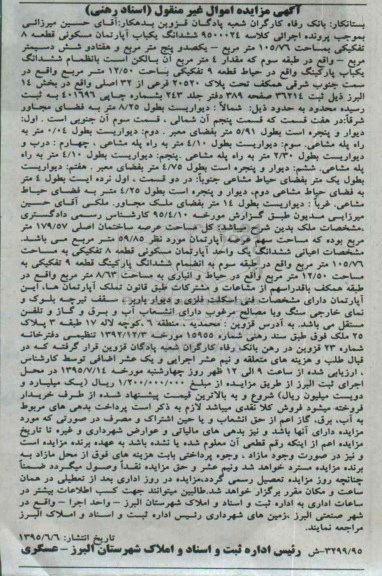 آگهی مزایده اموال غیر منقول (اسناد رهنی)
بستانکار: بانک رفاه کارگران شعبه پادگان قزوین بدهکار: آقای حسین میرزائی
بموجب پرونده اجرائی کلاسه ۹۵۰۰۰۲۴ ششدانگ یکباب آپارتمان مسکونی قطعه ۸
تفکیکی بمساحت ۱۰۵/۷۶ متر مربع - یکصدو پنج متر مربع و هفتادو شش دسیمتر
مربع - واقع در طبقه سوم که مقدار ۴ متر مربع آن بالکن است بانظمام ششدانگ
یکباب پارکینگ واقع در حیاط قطعه ۹ تفکیکی بساحت ۱۲/۵۰ متر مربع واقع در
سمت جنوب شرقی همکف تحت پلاک ۲۰۵۲۰ فرعی از ۲۳ اصلی واقع در بخش ۱۴
البرز ذیل ثبت ۳۳۲۱۴ صفحه ۳۸۹ دفتر جلد ۲۴۳ بشماره چاپی ۴۰۱۶۹۶ به ثبت
رسیده محدود به حدود ذیل: شمالا: دیواریست بطول ۸/۲۵ متر به فضای مجاور
شرقا: در هفت قسمت که قسمت پنجم آن شمالی، قسمت سوم آن جنوبی است. اول:
دیوار و پنجره است بطول ۵/۹۱ متر بفضای معبر. دوم: دیواریست بطول ۰/۰۴ متر به
راه پله مشاعی. سوم: دیواریست بطول ۴/۱۰ متر به راه پله مشاعی، چهارم: درب و
دیواریست بطول ۲/۳۰ متر به راه پله مشاعی. پنجم: دیواریست بطول ۴/۱۰ متر به راه
پله مشاعی. ششم: دیوار و پنجره است بطول ۴/۷۵ متر بفضای معبر. هفتم: دیواریست
بطول یک متر بفضای حیاط مشاعی جنوبا: در دو قسمت، اول نرده ایست بطول ۴ متر
به فضای حیاط مشاعی دوم، دیوار و پنجره است بطول ۴/۲۵ متر به فضای حیاط
مشاعی. غربا: دیواریست بطول ۱۴ متر بفضای ملک مجاور. ملکی آقای حسین
میرزایی مدیون طبق گزارش مورخه ۹۵/۴/۱۰ کارشناس رسمی دادگستری
.مشخصات ملک بدین شرح میباشد: کل مساحت عرصه ساختمان اصلی ۱۷۹/۵۷ متر
مربع بوده که مساحت سهم عرصه آپارتمان مورد نظر ۵۹/۸۵ متر مربع می باشد.
مشخصات اعیانی ششدانگ یک واحد آپارتمان مسکونی قطعه ۸ تفکیکی به مساحت
۱۰۵/۷۶ متر مربع واقع در طبقه سوم به انضمام ششدانگ پارکینگ قطعه ۹ تفکیکی به
مساحت ۱۲/۵۰ متر مربع واقع در حیاط و انباری به مساحت ۸/۶۳ متر مربع واقع در
طبقه همکف باقدراسهم از مشاعات و مشترکات طبق قانون تملک آپارتمان ها، این
آپارتمان دارای مشخصات فنی اسکلت فلزی و دیوار باربر، سقف تیرچه بلوک و
نمای خارجی سنگ وبا مصالح مرغوب دارای انشعاب آب و برق و گاز و تلفن
مستقل می باشد. به آدرس قزوین: محمدیه، منطقه ۱، کوچه لاله ۱۷ طبقه ۳ پلاک
۲۵ ملک فوق طبق سند رهنی شماره ۱۵۹۵۵ مورخه ۱۳۹۲/۱۲/۳ تنظیمی دفترخانه
شماره ۲۳ قزوین در رهن بانک رفاه کارگران شعبه پادگان قزوین قرار گرفته که در
قبال طلب و هزینه های متعلقه و نیم عشر اجرایی و یک عشر اضافی توسط کارشناس
. ارزیابی شده از ساعت ۹ الی ۱۲ ظهر روز چهارشنبه مورخه ۱۳۹۵/۷/۱۴ در محل
اجرای ثبت البرز از طریق مزایده از مبلغ ۱/۲۰۰/۰۰۰/۰۰۰ ریال (یک میلیارد و
دویست میلیون ریال) شروع و به بالاترین قیمت پیشنهاد شده از طرف خریدار
فروخته میشود فروش کلا نقدی میباشد لازم به ذکر است پرداخت بدهی های مربوط
به آب، برق، گاز اعم از حق انشعاب و یا حین اشتراک و مصرف در صورتی که مورد
مزایده دارای آنها باشد و نیز بدهی های مالیاتی و عوارض شهرداری و غیره تا تاریخ
مزایده اعم از اینکه رقم قطعی آن معلوم شده یا نشده باشد به عهده برنده مزایده است
و نیز در صورت وجود مازاد، وجوه پرداختی بابت هزینه های فوق از محل مازاد به
برنده مزایده مسترد خواهد شد ونیم عشر و حق مزایده نقدا وصول میگردد ضمنا
چنانچه روز مزایده تعطیل رسمی گردد.مزایده در روز اداری بعد از تعطیلی در همان
ساعت و مکان مقرر برگزار خواهد شد.طالبین میتوانند جهت کسب اطلاعات بیشتر در
ساعات اداری به اداره ثبت و اسناد و املاک شهرستان البرز - واحد اجرا - واقع در
شهر صنعتی البرز ،زمین های شهرداری رئیس اداره ثبت و اسناد و املاک البرز
مراجعه نمایند.
تاریخ انتشار: ۱۳۹۵/۶/۶
۳۲۹۹/۹۵-ش رئیس اداره ثبت و اسناد و املاک شهرستان البرز - عسگری